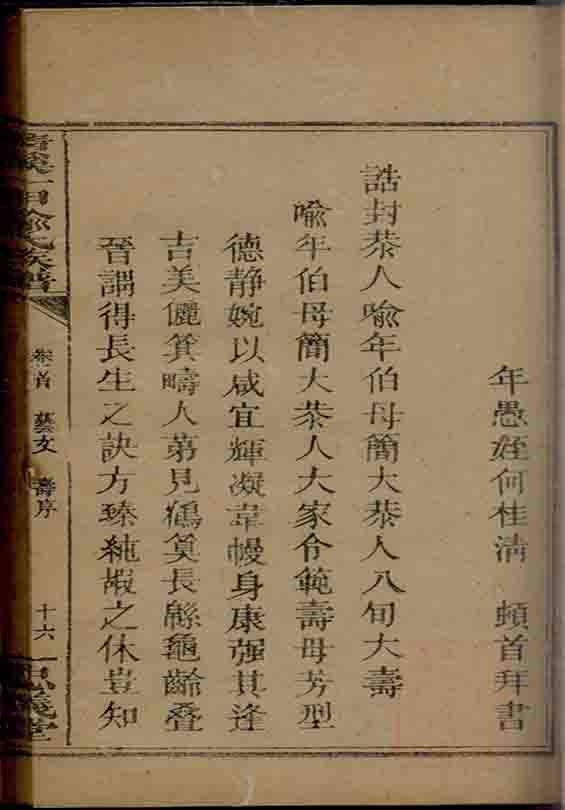 年愚姪何桂清 頓首拜書
誥封恭人喻年伯母簡大恭人八旬大壽
喻年伯母簡大恭人大家令範壽母芳型
德静婉以咸宜輝凝韋幔身康强其逢
吉美儷箕疇人第見鶴筭長緜龜齡叠
晉謂得長生之訣方臻純嘏之休豈知
喻氏族譜
卷首 藝文 壽序
十六
堂